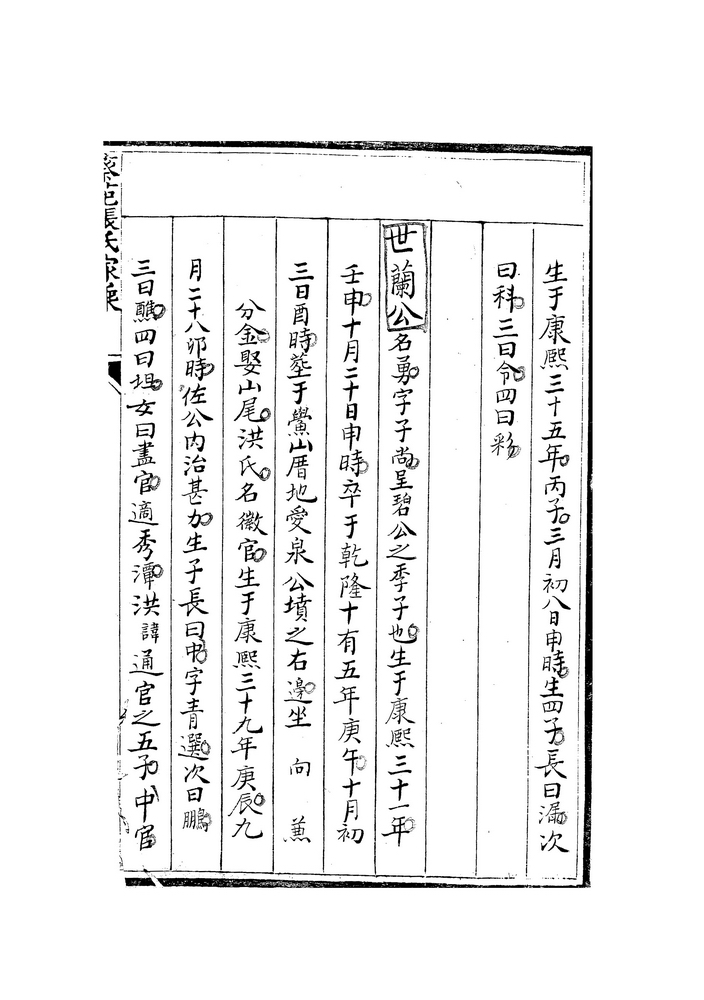 生于康熙三十五年丙子三月初八日申時生四子長曰漏次
曰科三曰令四曰彩
世蘭公名勇字子尚呈碧公之季子也生于康熙三十一年
壬申十月二十日申時卒于乾隆十有五年庚午十月初
三日酉時塟于鱟山厝地愛泉公墳之右邊坐 向 蒹
分金娶山尾洪氏名徽官生于康熙三十九年庚辰九
月二十八卯時佐公内治甚力生子長曰中字青選次曰鵬
三曰鷦四曰坦女曰盡官適秀潭洪諱通官之五子中官
張氏家乘